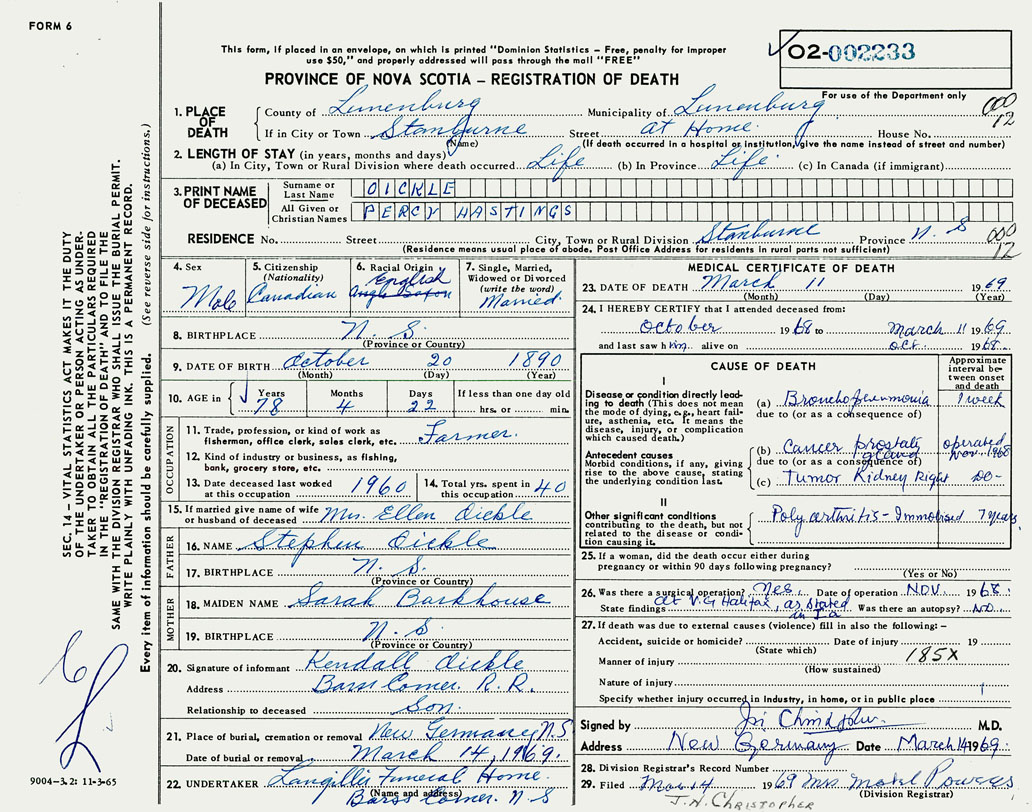 FORM 6
This form, if placed in an envelope, on which is printed "Dominion Statistics – Free, penalty for improper
use $50," and properly addressed will pass through the mail "FREE"
PROVINCE OF NOVA SCOTIA – REGISTRATION OF DEATH
02-002233
For use of the Department only
000
12
1. PLACE OF DEATH
County of Lunenburg Municipality of Lunenburg
If in City or Town Stanburne Street at Home House No.
(Name) (If death occurred in a hospital or institution, give the name instead of street and number)
2. LENGTH OF STAY (in years, months and days)
(a) In City, Town or Rural Division where death occurred Life (b) In Province Life (c) In Canada (if immigrant)
3. PRINT NAME OF DECEASED
Surname or Last Name OICKLE
All Given or Christian Names PERCY HASTINGS
RESIDENCE No. Street City, Town or Rural Division Stanburne Province N. S
(Residence means usual place of abode. Post Office Address for residents in rural parts not sufficient)
000
12
4. Sex Male
5. Citizenship (Nationality) Canadian
6. Racial Origin English
Anglo Saxon
7. Single, Married, Widowed or Divorced (write the word) Married
8. BIRTHPLACE N. S.
(Province or Country)
9. DATE OF BIRTH October 20 1890
(Month) (Day) (Year)
10. AGE in Years 78 Months 4 Days 22 If less than one day old hrs. or min.
OCCUPATION
11. Trade, profession or kind of work as fisherman, office clerk, sales clerk, etc. Farmer.
12. Kind of industry or business, as fishing, bank, grocery store, etc.
13. Date deceased last worked at this occupation 1960
14. Total yrs. spent in this occupation 40
15. If married give name of wife or husband of deceased Mrs. Ellen Oickle
FATHER
16. NAME Stephen Oickle
17. BIRTHPLACE N. S.
(Province or Country)
MOTHER
18. MAIDEN NAME Sarah Barkhouse
19. BIRTHPLACE N. S
(Province or Country)
20. Signature of informant Kendall Oickle
Address Barss Corner. R. R.
Relationship to deceased Son.
21. Place of burial, cremation or removal New Germany N.S
Date of burial or removal March 14, 1969.
22. UNDERTAKER Langilles Funeral Home.
(Name and address)
Barss Corner. N. S
MEDICAL CERTIFICATE OF DEATH
23. DATE OF DEATH March 11 1969
(Month) (Day) (Year)
24. I HEREBY CERTIFY that I attended deceased from:
October 1968 to March 11 1969
and last saw him alive on oct. 1968.
CAUSE OF DEATH
Approximate interval between onset and death
I
Disease or condition directly leading to death (This does not mean the mode of dying, e.g., heart failure, asthenia, etc. It means the disease, injury, or complication which caused death.)
(a) Bronchopneumonia 1 week
due to (or as a consequence of)
Antecedent causes
Morbid conditions, if any, giving rise to the above cause, stating the underlying condition last.
(b) Cancer prostate gland operated Nov. 1968
due to (or as a consequence of)
(c) Tumor Kidney Right DO-
II
Other significant conditions
contributing to the death, but not related to the disease or condition causing it.
Polyarthritis - Immobilised 7 years.
25. If a woman, did the death occur either during pregnancy or within 90 days following pregnancy?
(Yes or No)
26. Was there a surgical operation? Yes Date of operation NOV. 1968.
State findings at V.G Halifax, as stated in I a Was there an autopsy? NO.
27. If death was due to external causes (violence) fill in also the following: –
Accident, suicide or homicide? Date of injury 19
(State which)
Manner of injury 185X
(How sustained)
Nature of injury
Specify whether injury occurred in industry, in home, or in public place
Signed by M.D.
Address New Germany Date March 14 1969.
28. Division Registrar's Record Number
29. Filed Mar 14 1969 Mrs Powers
(Division Registrar)
J. N. CHRISTOPHER
SEC. 14 – VITAL STATISTICS ACT MAKES IT THE DUTY
OF THE UNDERTAKER OR PERSON ACTING AS UNDER-
TAKER TO OBTAIN ALL THE PARTICULARS REQUIRED
IN THE "REGISTRATION OF DEATH" AND TO FILE THE
SAME WITH THE DIVISION REGISTRAR WHO SHALL ISSUE THE BURIAL PERMIT.
WRITE PLAINLY WITH UNFADING INK. THIS IS A PERMANENT RECORD.
Every item of information should be carefully supplied. (See reverse side for instructions.)
9004–3.2: 11-3-65